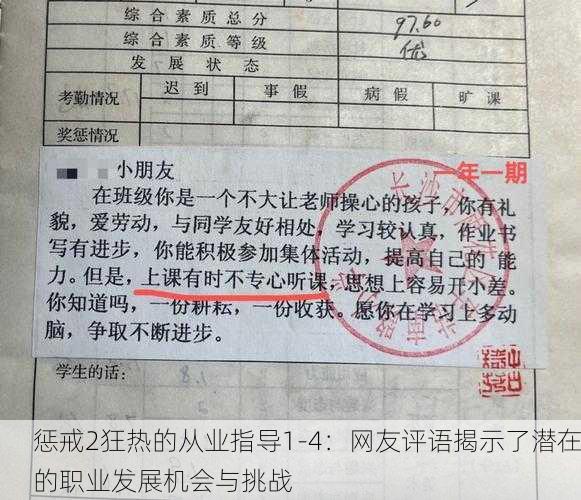 综合素质总分
97.60
综合素质等级
优
发展状态
考勤情况
迟到
事假
病假
旷课
奖惩情况
小朋友
一年一期
在班级你是一个不大让老师操心的孩子，你有礼
貌，爱劳动，与同学友好相处，学习较认真，作业书
写有进步，你能积极参加集体活动，提高自己的 能
力。但是，上课有时不专心听课，思想上容易开小差。
你知道吗，一份耕耘，一份收获。愿你在学习上多动
脑，争取不断进步。
学生的话：
惩戒2狂热的从业指导1-4：网友评语揭示了潜在
的职业发展机会与挑战